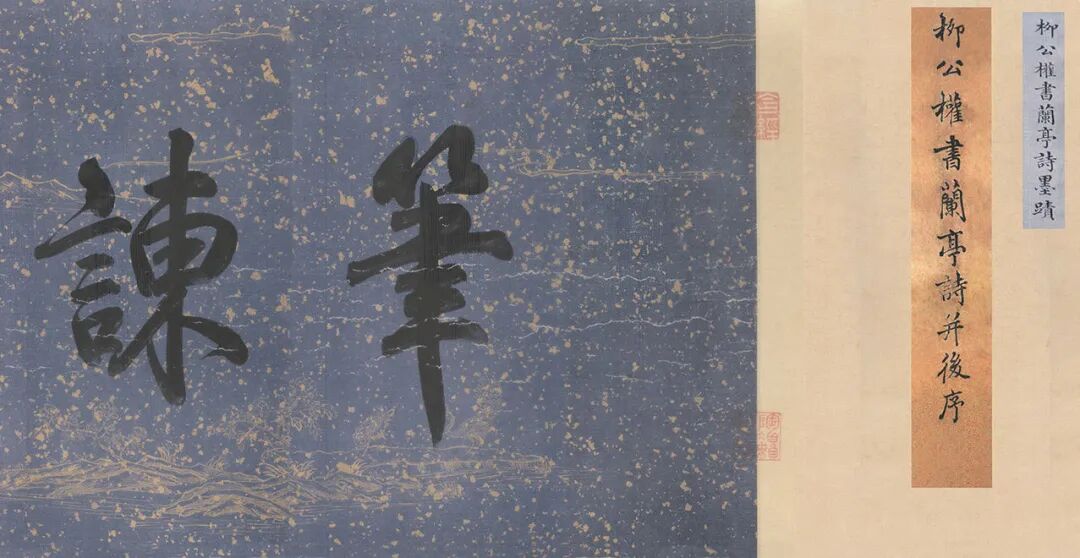 柳公權書蘭亭詩墨蹟
柳公權書蘭亭詩并後序
筆諫